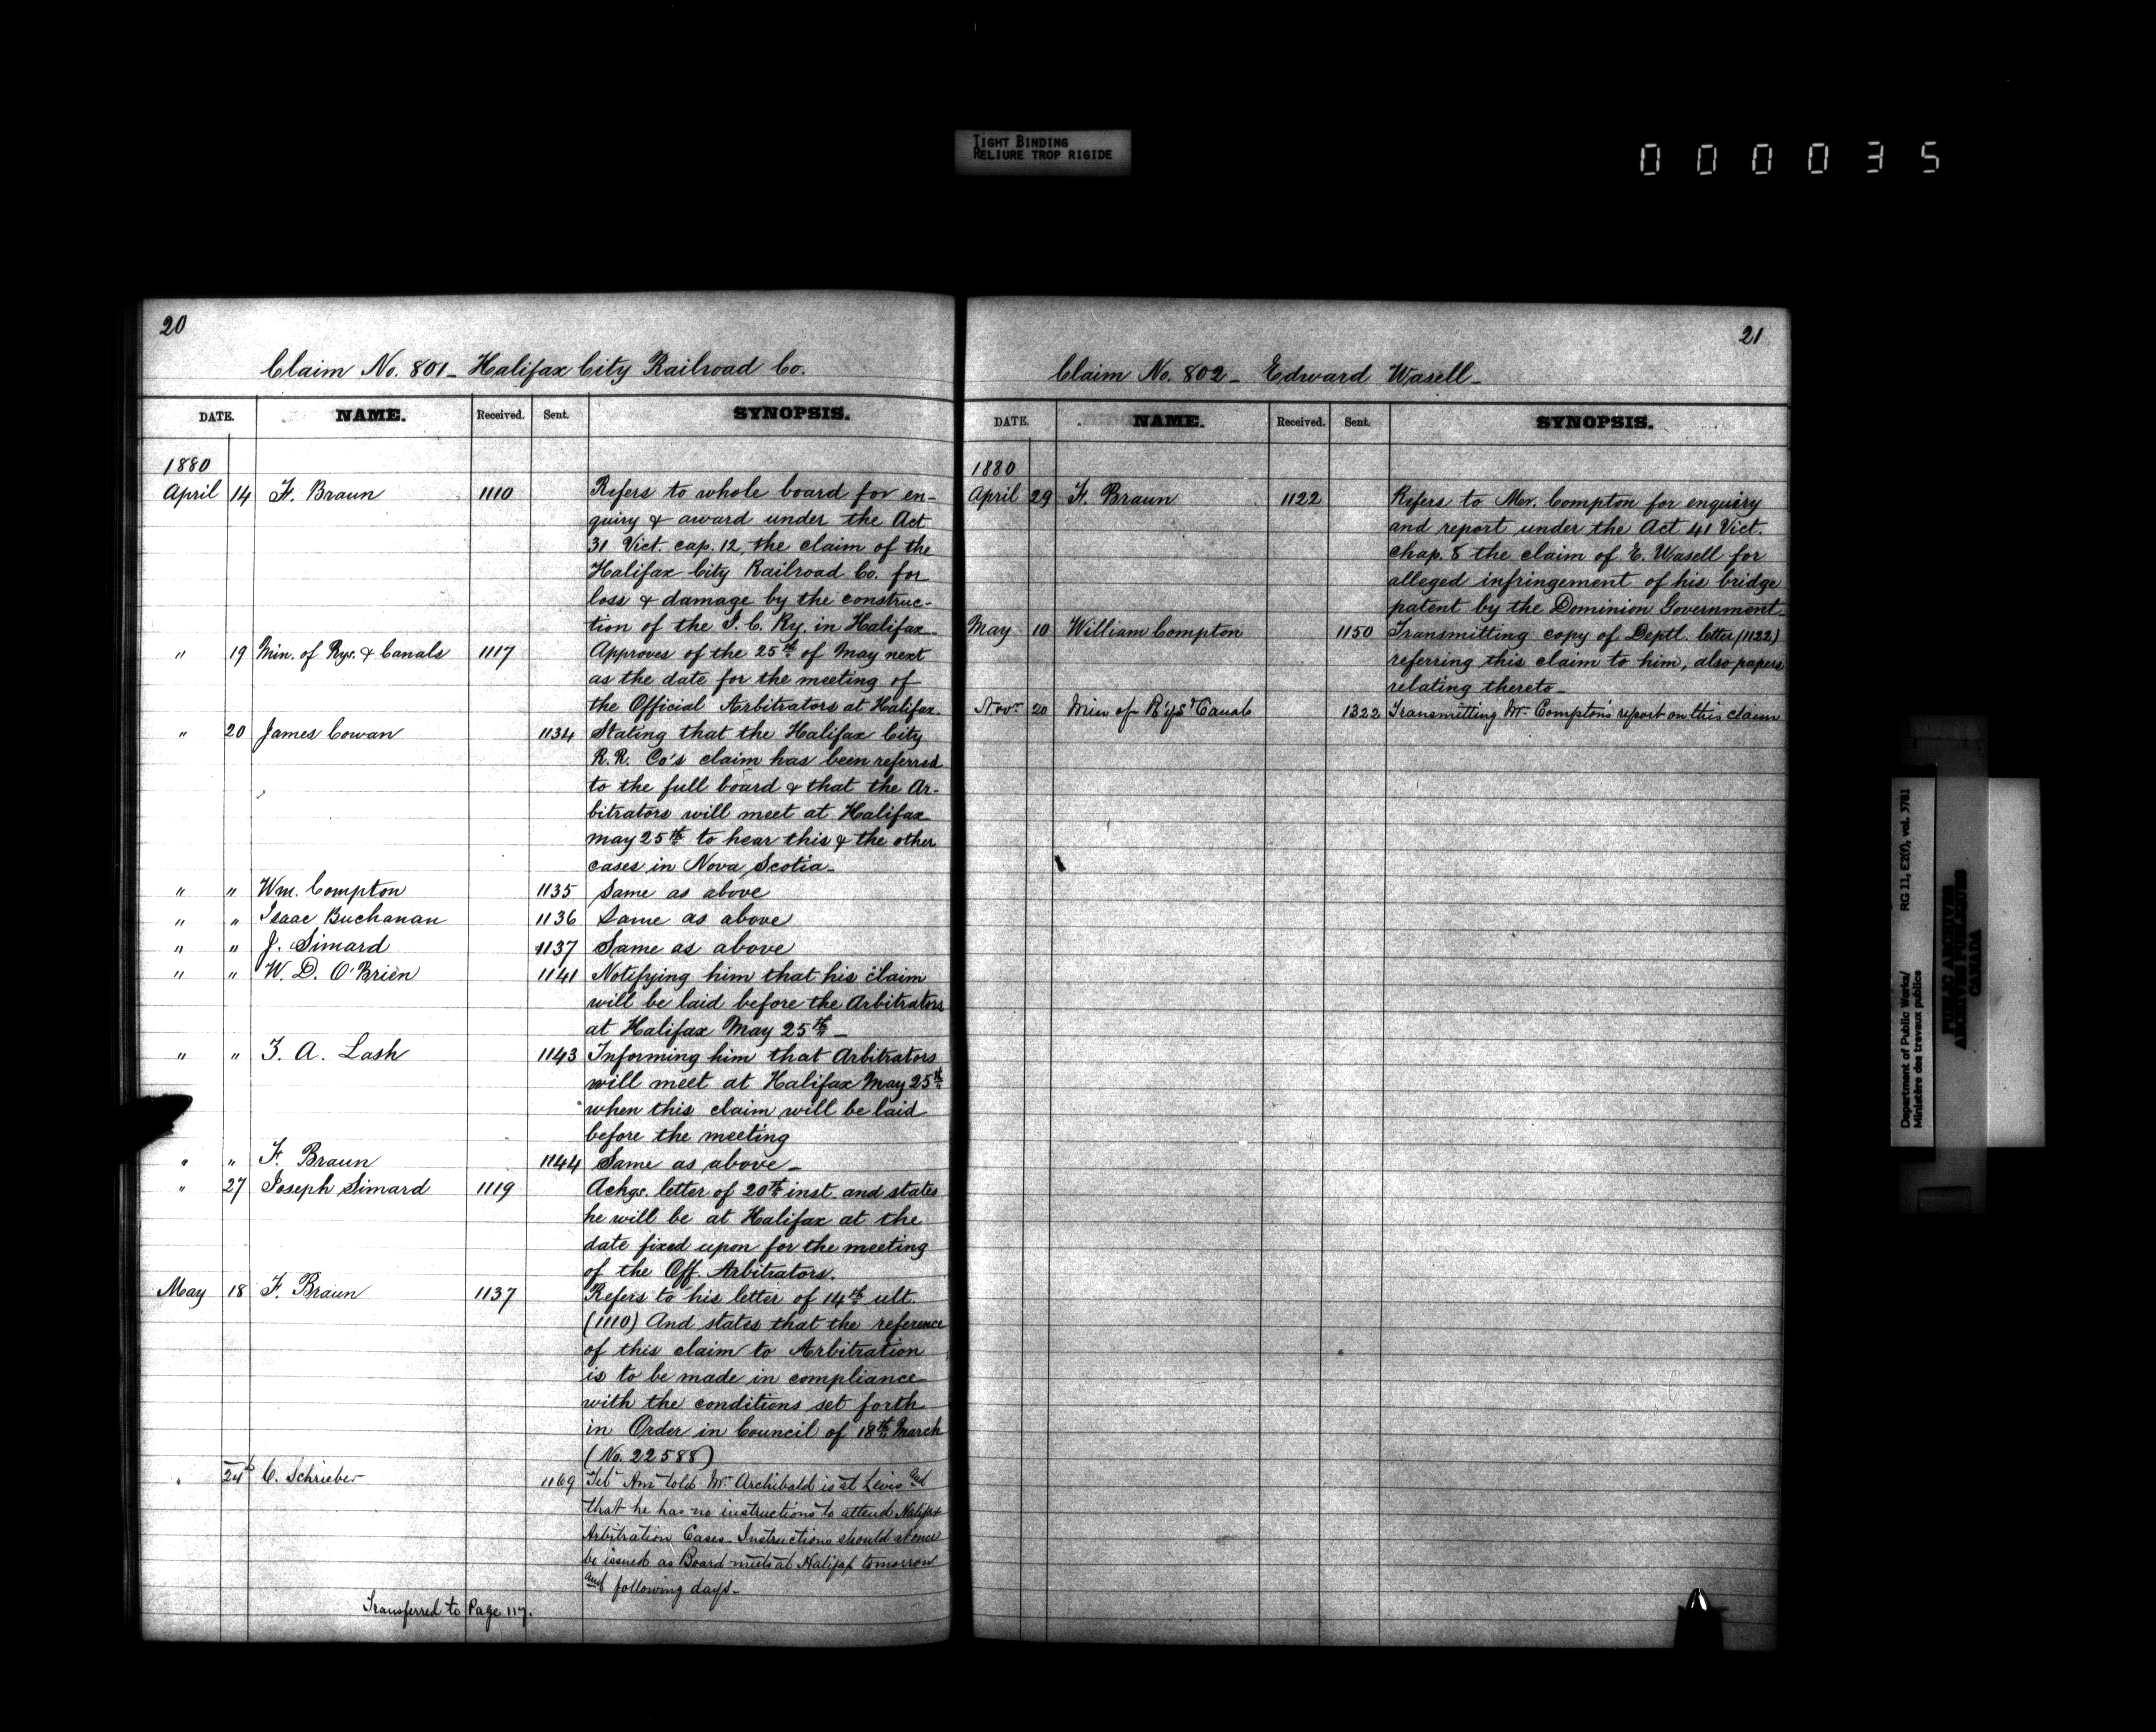 TIGHT BINDING
RELIURE TROP RIGIDE
000035
20
Claim No. 801 - Halifax City Railroad Co.
DATE. NAME. Received. Sent. SYNOPSIS.
1880
April 14 F. Braun 1110 Refers to whole board for en-
quiry & award under the Act
31 Vict. cap. 12, the claim of the
Halifax City Railroad Co. for
loss & damage by the construc-
tion of the I. C. Ry. in Halifax-
" 19 Min. of Rys. & Canals 1117 Approves of the 25th of May next
as the date for the meeting of
the Official Arbitrators at Halifax.
" 20 James Cowan 1134 Stating that the Halifax City
R.R. Co's claim has been referred
to the full board & that the Ar-
bitrators will meet at Halifax
May 25th to hear this & the other
cases in Nova Scotia-
" " Wm. Compton 1135 Same as above
" " Isaac Buchanan 1136 Same as above
" " J. Simard 1137 Same as above
" " W. D. O'Brien 1141 Notifying him that his claim
will be laid before the Arbitrators
at Halifax May 25th-
" " Z. A. Lash 1143 Informing him that Arbitrators
will meet at Halifax May 25th
when this claim will be laid
before the meeting
" " F. Braun 1144 Same as above-
" 27 Joseph Simard 1119 Ackgs. letter of 20th inst. and states
he will be at Halifax at the
date fixed upon for the meeting
of the Off. Arbitrators.
May 18 F. Braun 1137 Refers to his letter of 14th ult.
(1110) And states that the reference
of this claim to Arbitration
is to be made in compliance
with the conditions set forth
in Order in Council of 18th March
(No. 22588)
" 24th C. Schrieber 1169 Tel Am told Mr Archibald is at Levis and
that he has no instructions to attend Halifax
Arbitration Cases. Instructions should at once
be issued as Board meets at Halifax tomorrow
and following days-
Transferred to Page 117.
21
Claim No. 802 - Edward Wasell-
DATE. NAME. Received. Sent. SYNOPSIS.
1880
April 29 F. Braun 1122 Refers to Mr. Compton for enquiry
and report under the Act 41 Vict.
chap. 8 the claim of E. Wasell for
alleged infringement of his bridge
patent by the Dominion Government
May 10 William Compton 1150 Transmitting copy of Deptl. letter (1122)
referring this claim to him, also papers
relating thereto-
Novr 20 Min of R'ys & Canals 1322 Transmitting Mr Compton's report on this claim
Department of Public Works/
Ministère des travaux publics
RG 11, E2(f), vol. 3781
PUBLIC ARCHIVES
ARCHIVES PUBLIQUES
CANADA